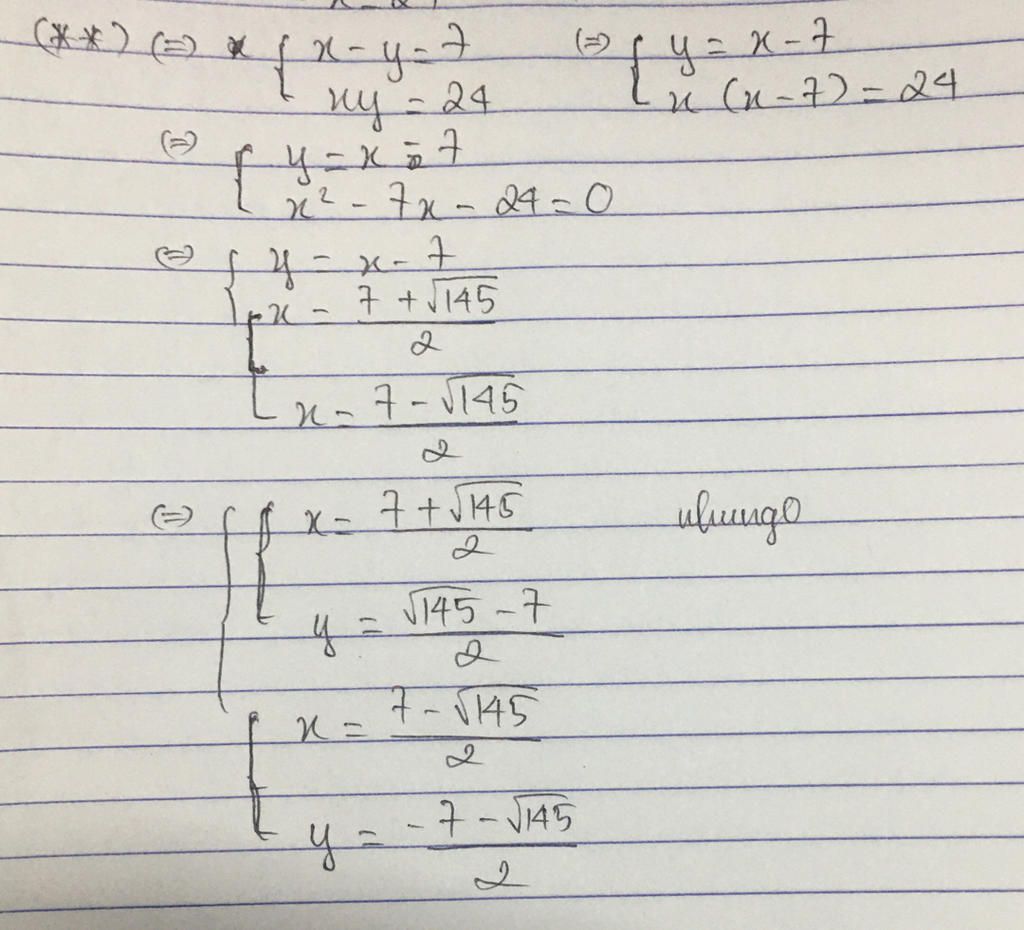 (**) (=) { x - y = 7 (=) { y = x - 7
xy = 24 x (x - 7) = 24
(=) { y = x - 7
x² - 7x - 24 = 0
(=) { y = x - 7
[ x = (7 + √145)/2
x = (7 - √145)/2
(=) [ { x = (7 + √145)/2
y = (√145 - 7)/2
{ x = (7 - √145)/2
y = (-7 - √145)/2